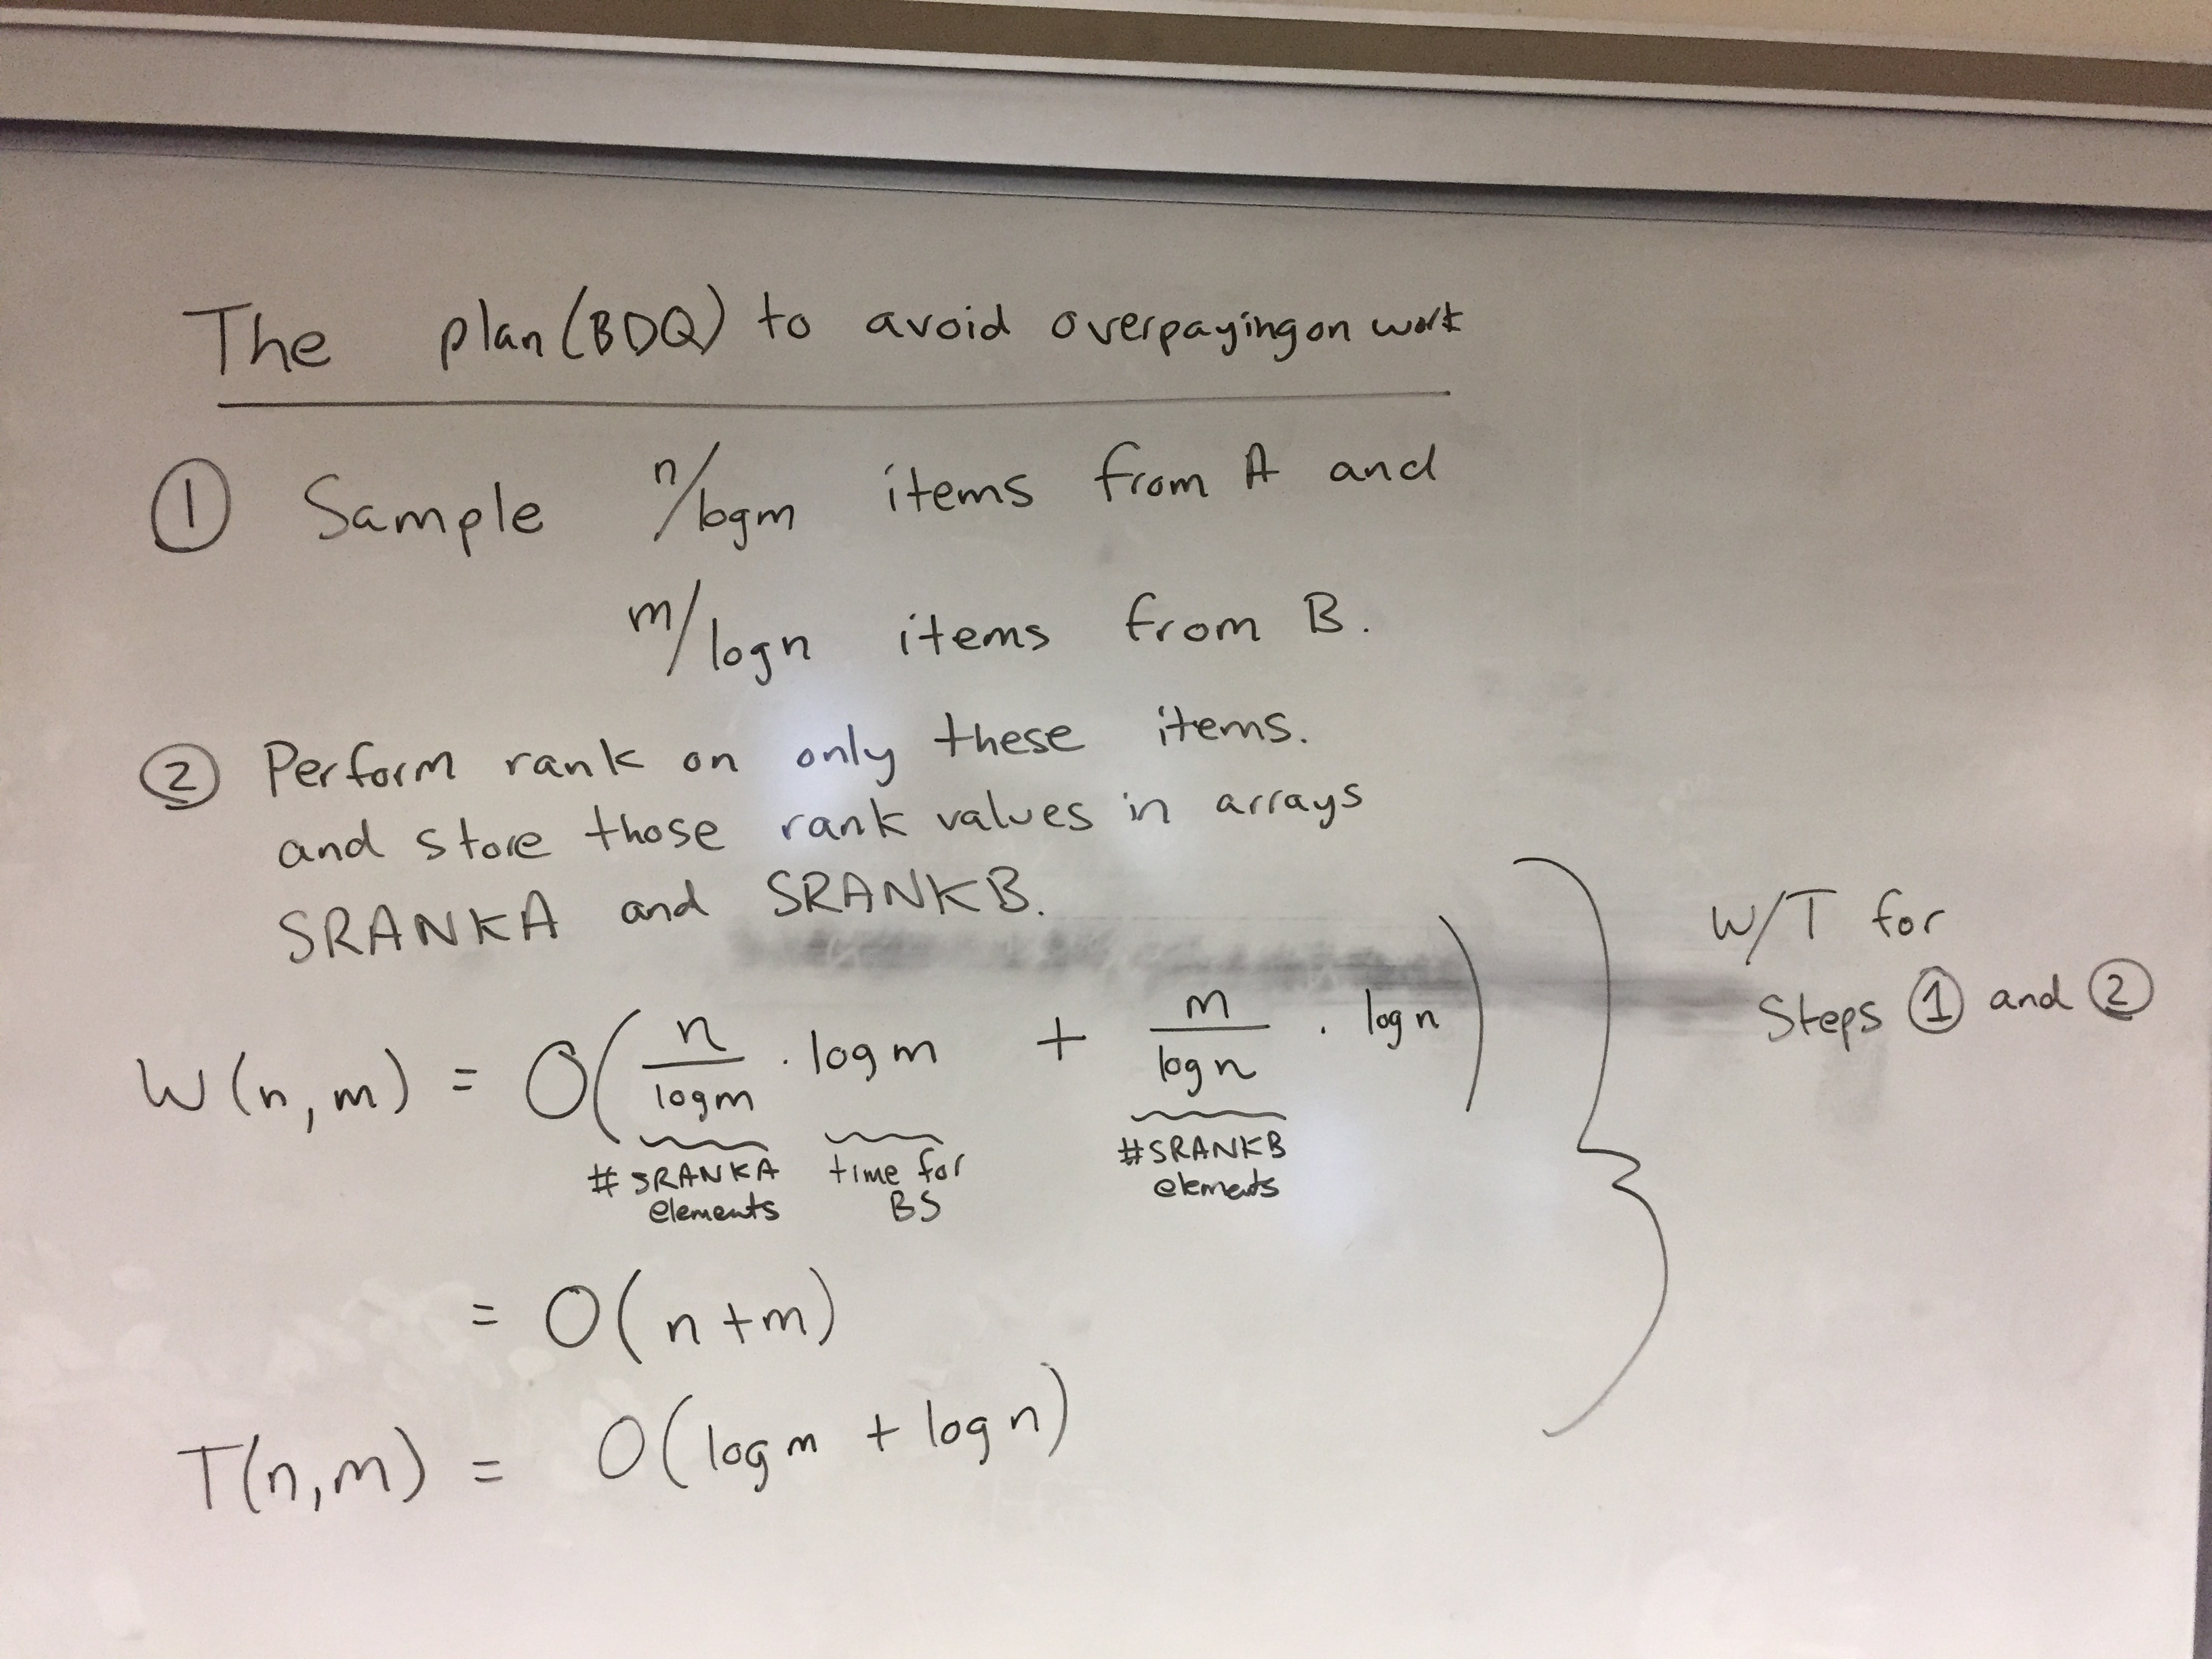 The plan (BDQ) to avoid overpaying on work
① Sample n/logm items from A and
m/logn items from B.
② Perform rank on only these items.
and store those rank values in arrays
SRANKA and SRANKB.
W(n,m) = O( n/logm · logm + m/logn · logn )
#SRANKA elements
time for BS
#SRANKB elements
= O(n+m)
T(n,m) = O(logm + logn)
W/T for
Steps ① and ②